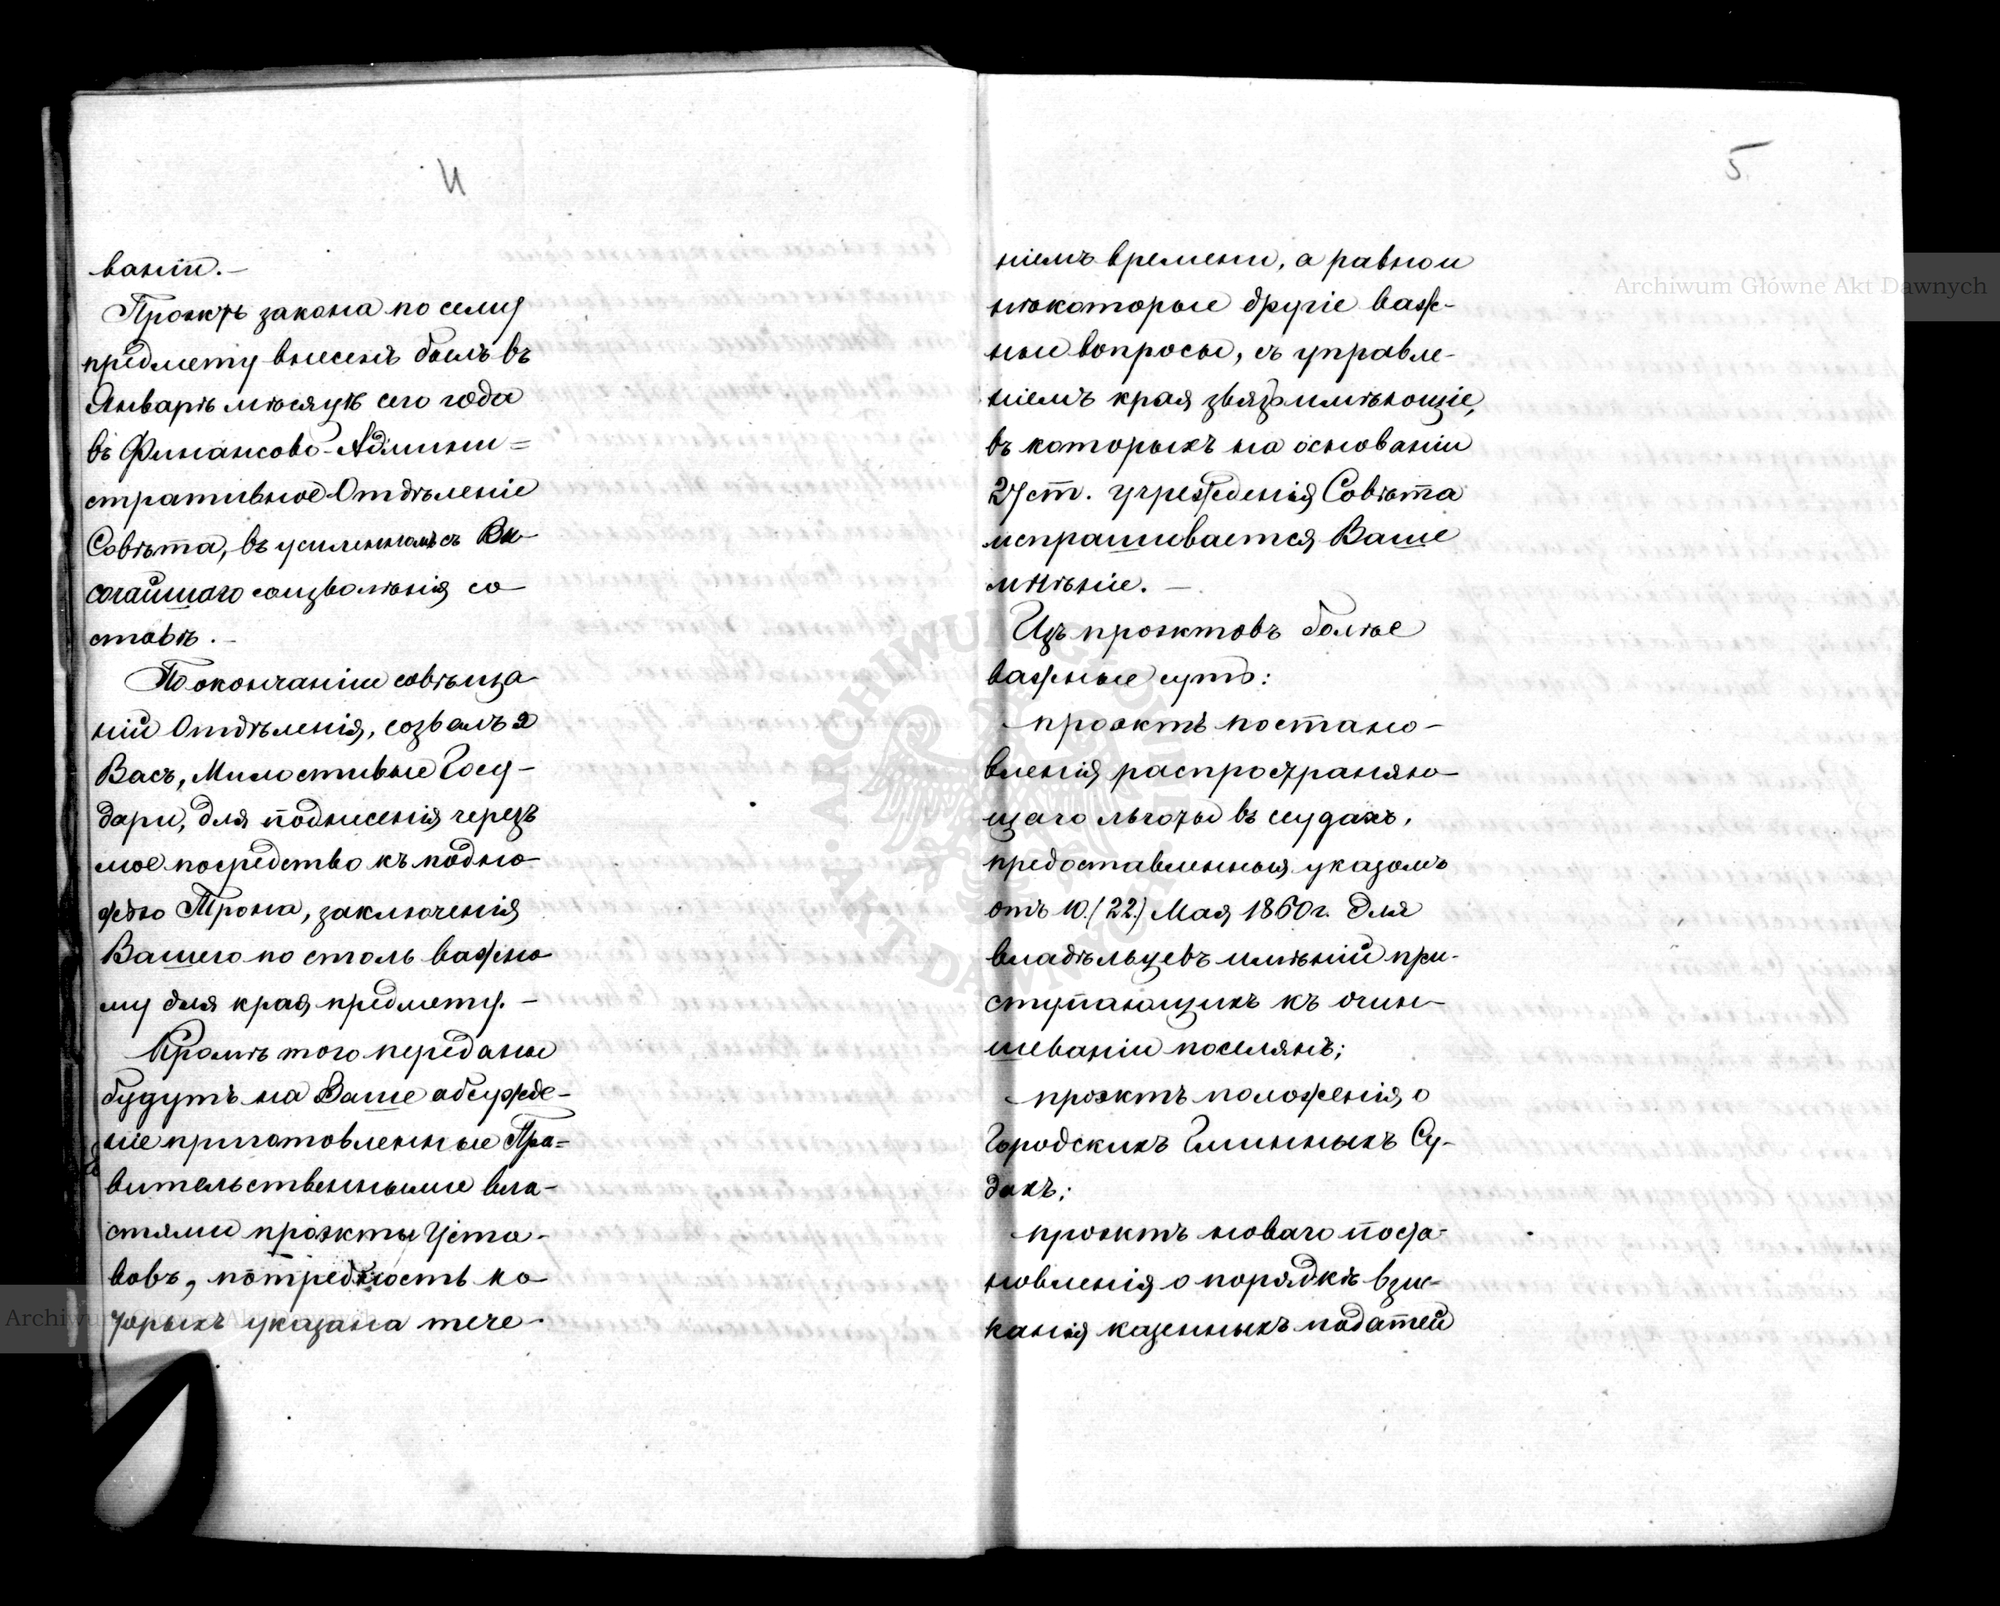 4
ваніи.—
Проэктъ закона по сему
предмету внесенъ былъ въ
Январѣ мѣсяцѣ сего года
въ Финансово-Админи=
стративное Отдѣленіе
Совѣта, въ усиленномъ съ Вы-
сочайшаго соизволенія со-
ставѣ.—
По окончаніи совѣща-
ній Отдѣленія, созвалъ я
Васъ, Милостивые Госу-
дари, для поднесенія черезъ
мое посредство къ подно-
жію Трона, заключенія
Вашего по столь важно-
му для края предмету.—
Кромѣ того переданы
будутъ на Ваше обсужде-
ніе приготовленные Пра=
вительственными вла-
стями проэкты Уста-
вовъ, потребность ко-
торыхъ указана тече-
5
ніемъ времени, а равно и
нѣкоторые другіе важ-
ные вопросы, съ управле-
ніемъ края связь имѣющіе,
въ которыхъ на основаніи
27 ст. учрежденія Совѣта
испрашивается Ваше
мнѣніе.—
Изъ проэктовъ болѣе
важные суть:
— проэктъ постано-
вленія распространяю-
щаго льготы въ ссудахъ,
предоставленныя указомъ
отъ 10.(22.) Мая 1860 г. для
владѣльцевъ имѣній при-
ступающихъ къ очин-
шеваніи поселянъ;
— проэктъ положенія о
Городскихъ Гминныхъ Су-
дахъ;
— проэктъ новаго поста-
новленія о порядкѣ взы-
канія казенныхъ податей
Archiwum Główne Akt Dawnych
Archiwum Główne Akt Dawnych
ARCHIWUM GŁÓWNE AKT DAWNYCH